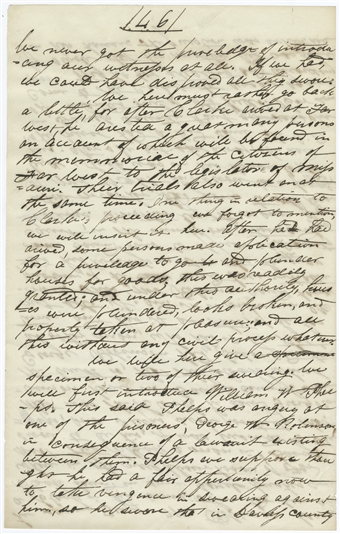 [46]
we never got the priviledge of introdu
=cing our witnesses at all. If we had,
we could have disproved all they swore.
We here must rather go back
a little, for after Clarke arived at Far
West, he arested a great many persons
an account of which will be found in
the memmorial of the citizens of
Far West to the legislator of Miss
=ouri. Their trials also went on at
the same time. One thing in relation to
Clarke's proceeding we forgot to mention,
we will insert it here. After he had
arived, some persons made application
for a priviledge to go and plunder
houses for goods, this was readily
granted; and under this authority, hous
=es were plundered, locks broken, and
property taken at pleasure; and all
this without any civil process whatever.
We will here give a
specimen or two of their swearing. We
will first introduce William W. Phe
=ps. This said Phelps was angry at
one of the prisoners, George W. Robinson,
in consequence of a lawsuit existing
between them. Phelps we suppose thou
ght he had a fair oppertunity now
to take vengence in swearing against
him, so he swore that in Daviess county